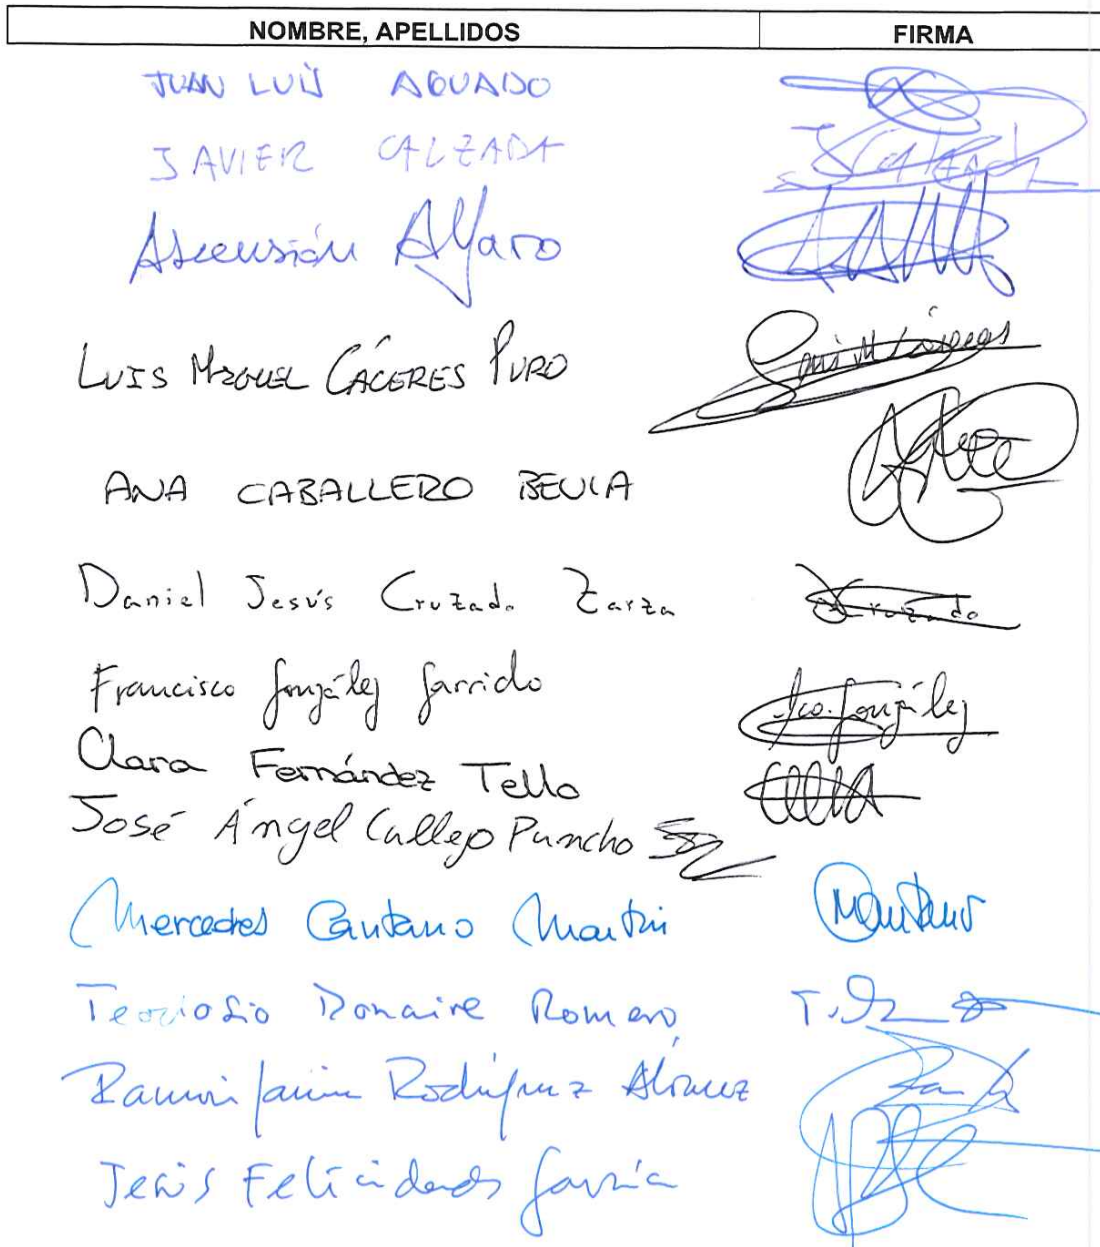 NOMBRE, APELLIDOS FIRMA
JUAN LUIS AGUADO
JAVIER CALZADA JCalzada
Ascensión Alfaro
LUIS MIGUEL CÁCERES PURO
ANA CABALLERO BEVIA
Daniel Jesús Cruzado Zarza Cruzado
Francisco González Garrido Fco. González
Clara Fernández Tello
José Ángel Callejo Puncho
Mercedes Cantano Martín MCantano
Teodosio Donaire Romero
Ramón Rodríguez Álvarez
Jesús Felicidades García